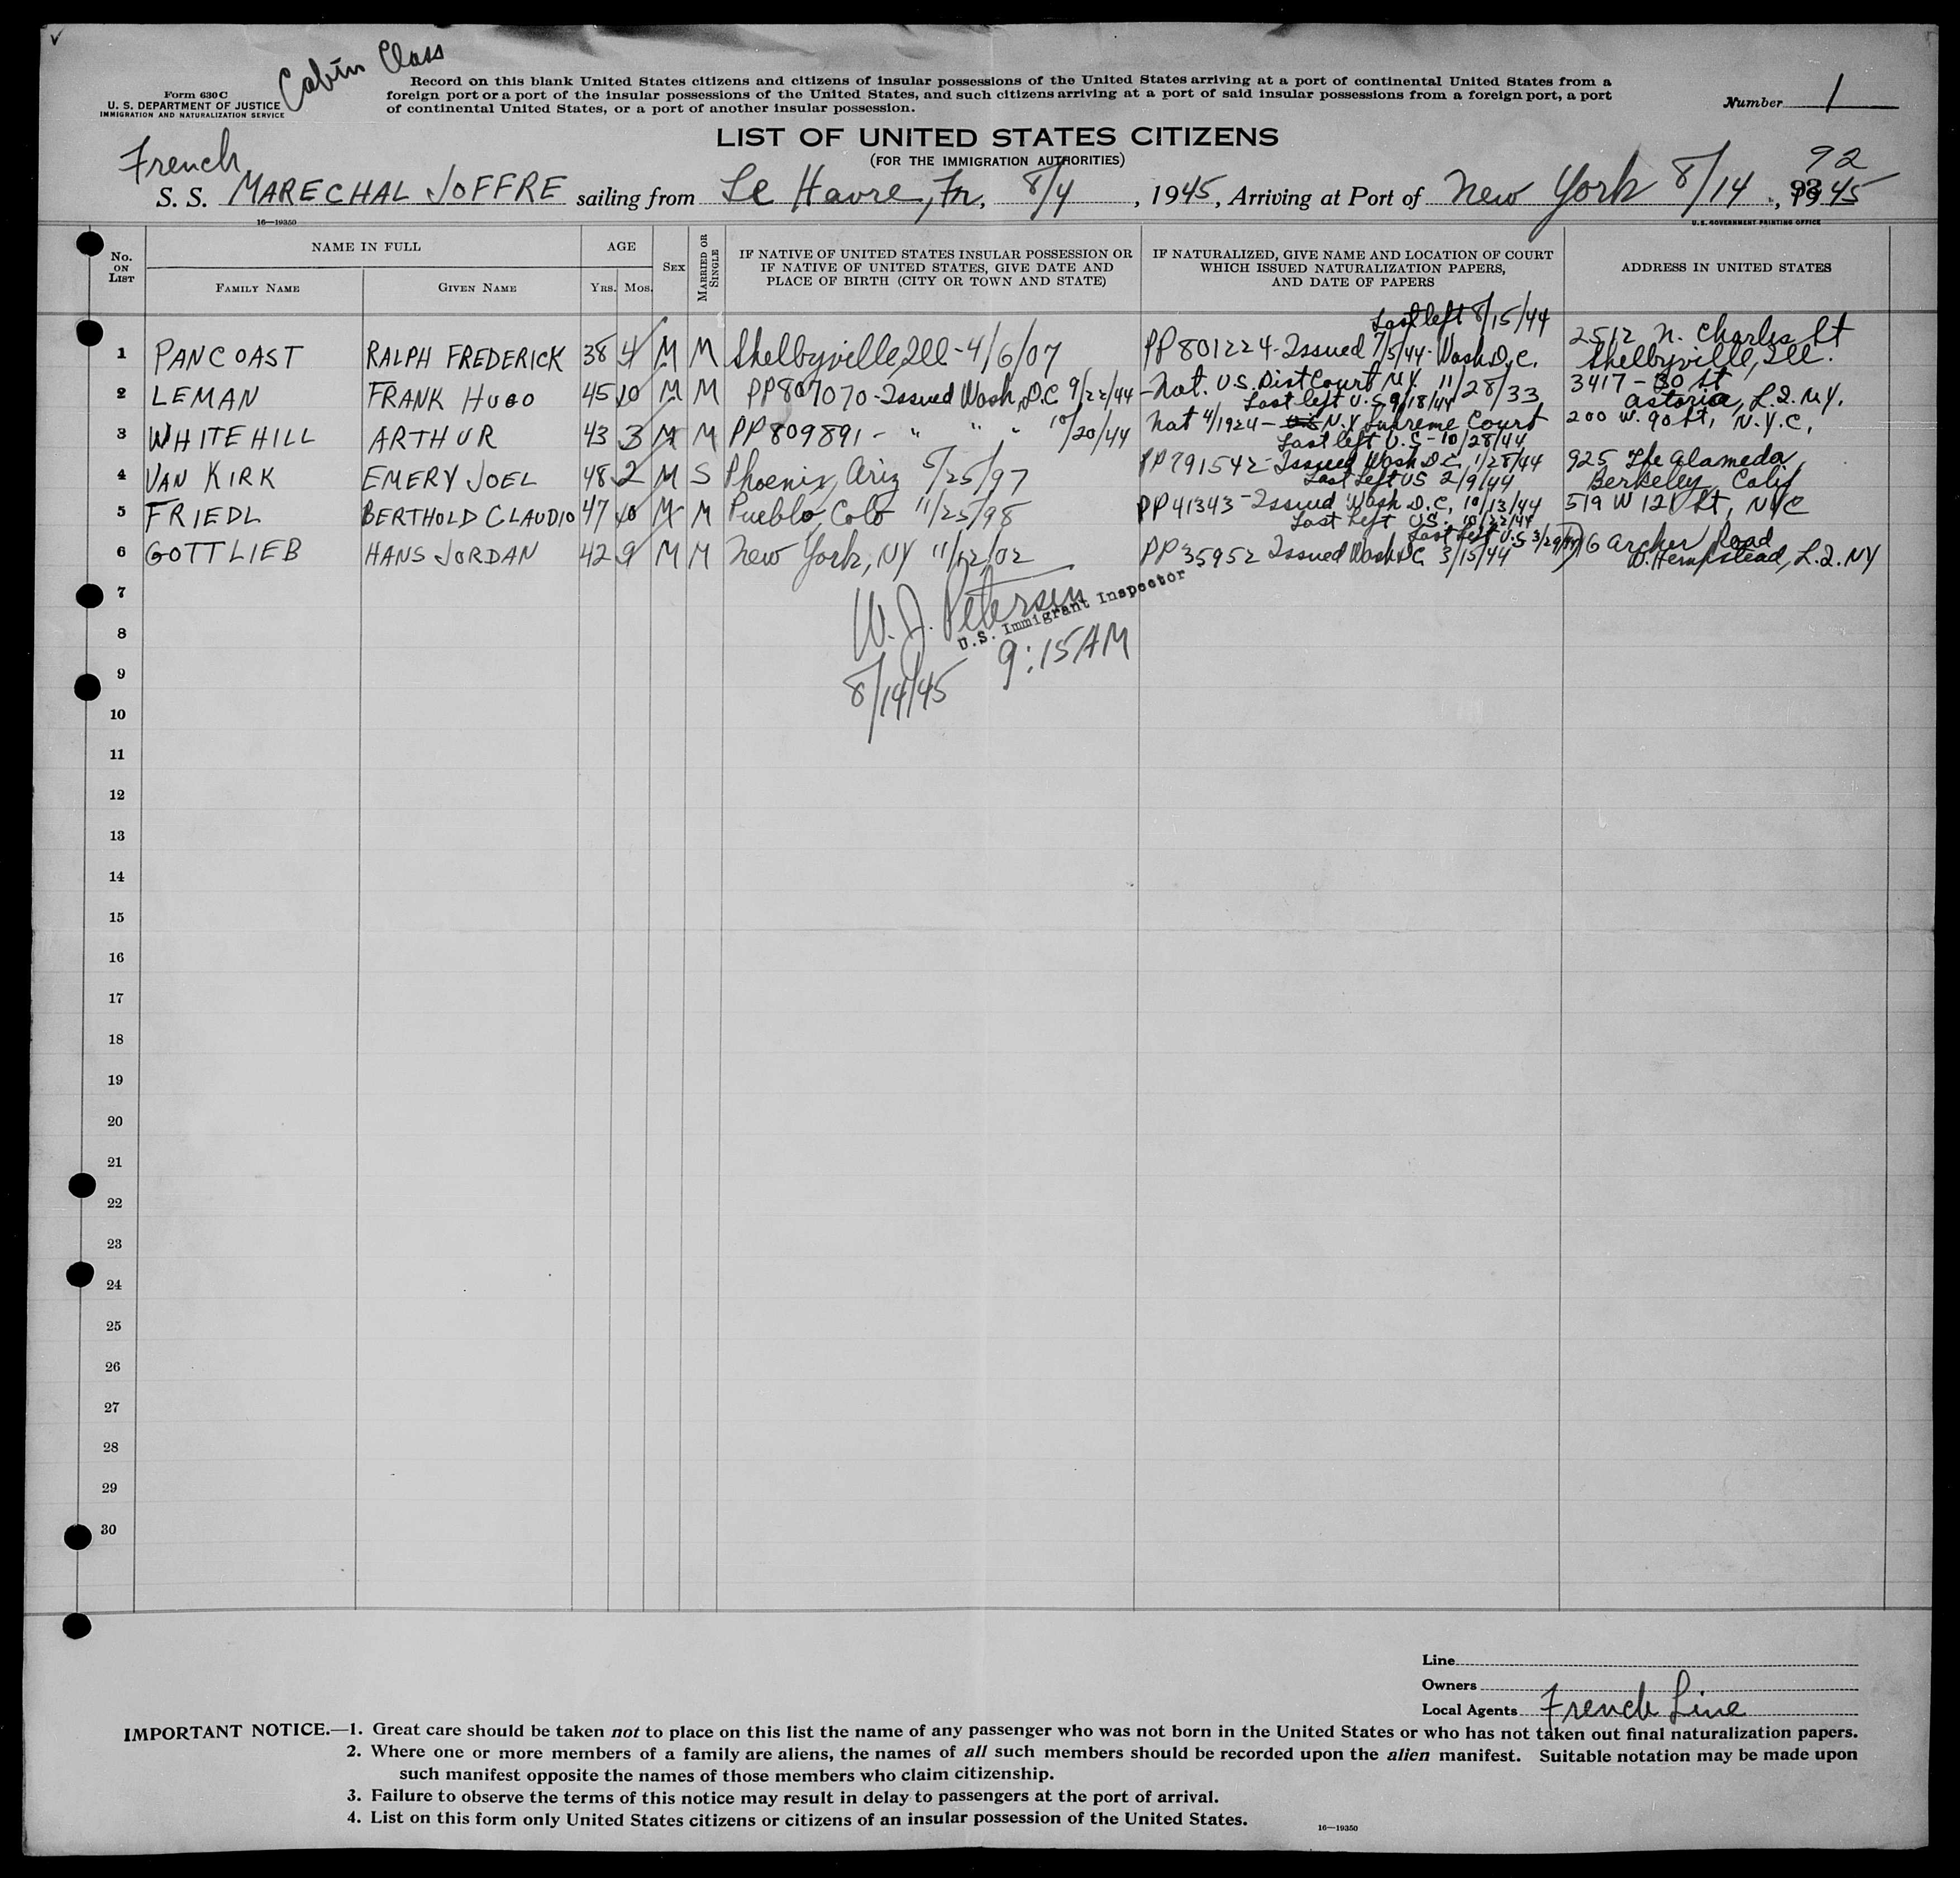 Cabin Class
Form 630 C
U. S. DEPARTMENT OF JUSTICE
IMMIGRATION AND NATURALIZATION SERVICE
Record on this blank United States citizens and citizens of insular possessions of the United States arriving at a port of continental United States from a
foreign port or a port of the insular possessions of the United States, and such citizens arriving at a port of said insular possessions from a foreign port, a port
of continental United States, or a port of another insular possession.
Number 1
LIST OF UNITED STATES CITIZENS
(FOR THE IMMIGRATION AUTHORITIES)
French
92
S. S. MARECHAL JOFFRE sailing from Le Havre, Fr, 8/4, 1945, Arriving at Port of New York 8/14, 1945
16—19350
U. S. GOVERNMENT PRINTING OFFICE
No. ON LIST
NAME IN FULL
FAMILY NAME
GIVEN NAME
AGE
YRS. MOS.
SEX
MARRIED OR SINGLE
IF NATIVE OF UNITED STATES INSULAR POSSESSION OR
IF NATIVE OF UNITED STATES, GIVE DATE AND
PLACE OF BIRTH (CITY OR TOWN AND STATE)
IF NATURALIZED, GIVE NAME AND LOCATION OF COURT
WHICH ISSUED NATURALIZATION PAPERS,
AND DATE OF PAPERS
ADDRESS IN UNITED STATES
Last left 8/15/44
1 PANCOAST RALPH FREDERICK 38 4 M M Shelbyville Ill - 4/6/07 PP 801224 - Issued 7/5/44 - Wash D.C. 2512 N. Charles St
Shelbyville, Ill.
2 LEMAN FRANK HUGO 45 10 M M PP 807070 - Issued Wash, D.C 9/22/44 - Nat. U.S. Dist Court N.Y. 11/28/33 3417 - 30 St
Last left U.S 9/18/44 Astoria, L.I. N.Y.
3 WHITEHILL ARTHUR 43 3 M M PP 809891 - " " " 10/20/44 Nat 4/1924 - U.S N.Y Supreme Court 200 W. 90 St, N.Y.C.
Last left U.S - 10/28/44
4 VAN KIRK EMERY JOEL 48 2 M S Phoenix, Ariz 5/25/97 PP 791542 - Issued Wash D.C. 1/28/44 925 The Alameda
Last Left US 2/9/44 Berkeley, Calif
5 FRIEDL BERTHOLD CLAUDIO 47 10 M M Pueblo, Colo 11/25/98 PP 41343 - Issued Wash D.C, 10/13/44 519 W 121 St, NYC
Last Left US. 10/22/44
Last Left U.S 3/29/44
6 GOTTLIEB HANS JORDAN 42 9 M M New York, NY 11/12/02 PP 35952 Issued Wash DC. 3/15/44 6 Archer Road
W. Hempstead, L.I. NY
7
W. J. Petersen
U.S. Immigrant Inspector
8
9:15 AM
8/14/45
9
10
11
12
13
14
15
16
17
18
19
20
21
22
23
24
25
26
27
28
29
30
Line
Owners
Local Agents French Line
IMPORTANT NOTICE.—1. Great care should be taken not to place on this list the name of any passenger who was not born in the United States or who has not taken out final naturalization papers.
2. Where one or more members of a family are aliens, the names of all such members should be recorded upon the alien manifest. Suitable notation may be made upon
such manifest opposite the names of those members who claim citizenship.
3. Failure to observe the terms of this notice may result in delay to passengers at the port of arrival.
4. List on this form only United States citizens or citizens of an insular possession of the United States.
16—19350